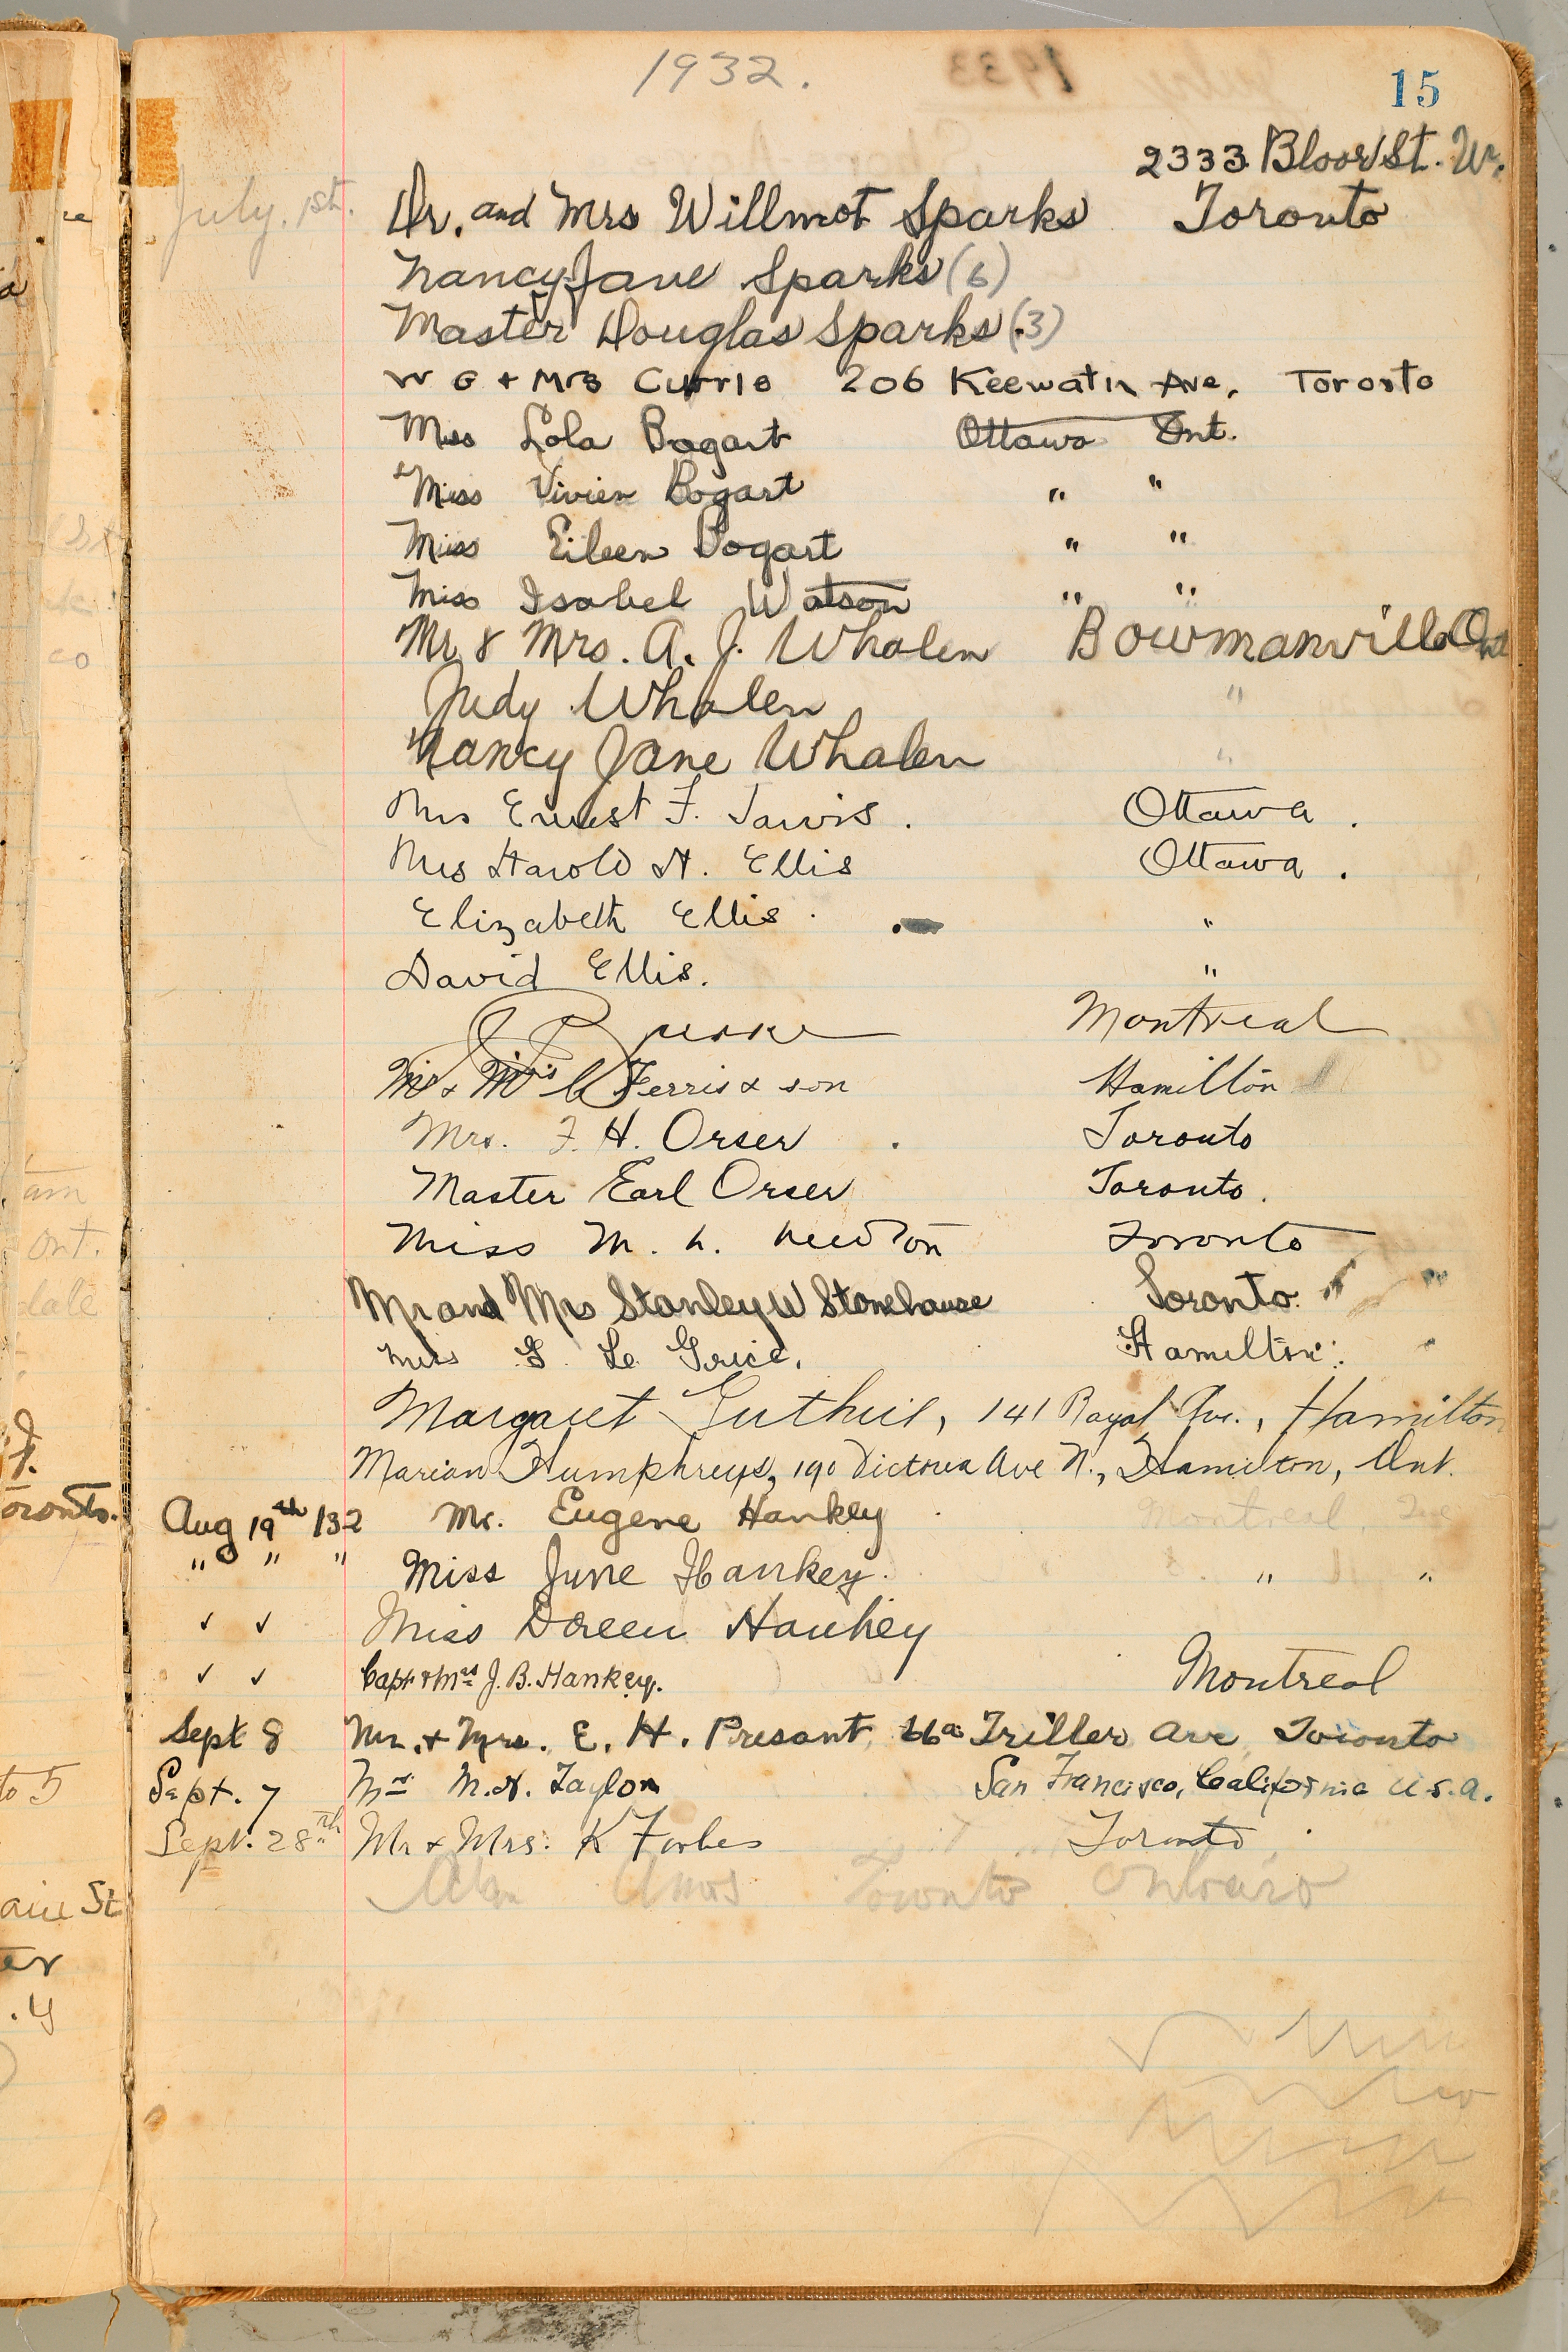 1932.
15
2333 Bloor St. W.
July. 1st. Dr. and Mrs Willmot Sparks Toronto
Nancy Jane Sparks (6)
Master Douglas Sparks (3)
W G + Mrs Currie 206 Keewatin Ave, Toronto
Miss Lola Bogart Ottawa Ont.
Miss Vivien Bogart " "
Miss Eileen Bogart " "
Miss Isabel Watson " "
Mr & Mrs. A. J. Whalen Bowmanville Ont
Judy Whalen "
Nancy Jane Whalen "
Mrs Ernest F. Jarvis. Ottawa.
Mrs Harold H. Ellis Ottawa.
Elizabeth Ellis. "
David Ellis. "
Montreal
Mr & Mrs C Ferris & son Hamilton
Mrs. F. H. Orser Toronto
Master Earl Orser Toronto.
Miss M. L. Newton Toronto
Mr and Mrs Stanley W Stonehouse Toronto. "
Miss G. Le Grice. Hamilton. "
Margaret Guthrie, 141 Royal Ave., Hamilton
Marian Humphreys, 190 Victoria Ave N., Hamilton, Ont.
Aug 19th /32 Mr. Eugene Hankey Montreal, Que
" " " Miss June Hankey. " "
✓ ✓ Miss Doreen Hankey
✓ ✓ Capt & Mrs J. B. Hankey. Montreal
Sept 8 Mr. + Mrs. E. H. Presant, Triller Ave Toronto
Sept. 7 Mrs M. H. Taylor San Francisco, California U.S.A.
Sept. 28th Mr & Mrs. K Forbes Toronto
Alan Amos Toronto Ontario